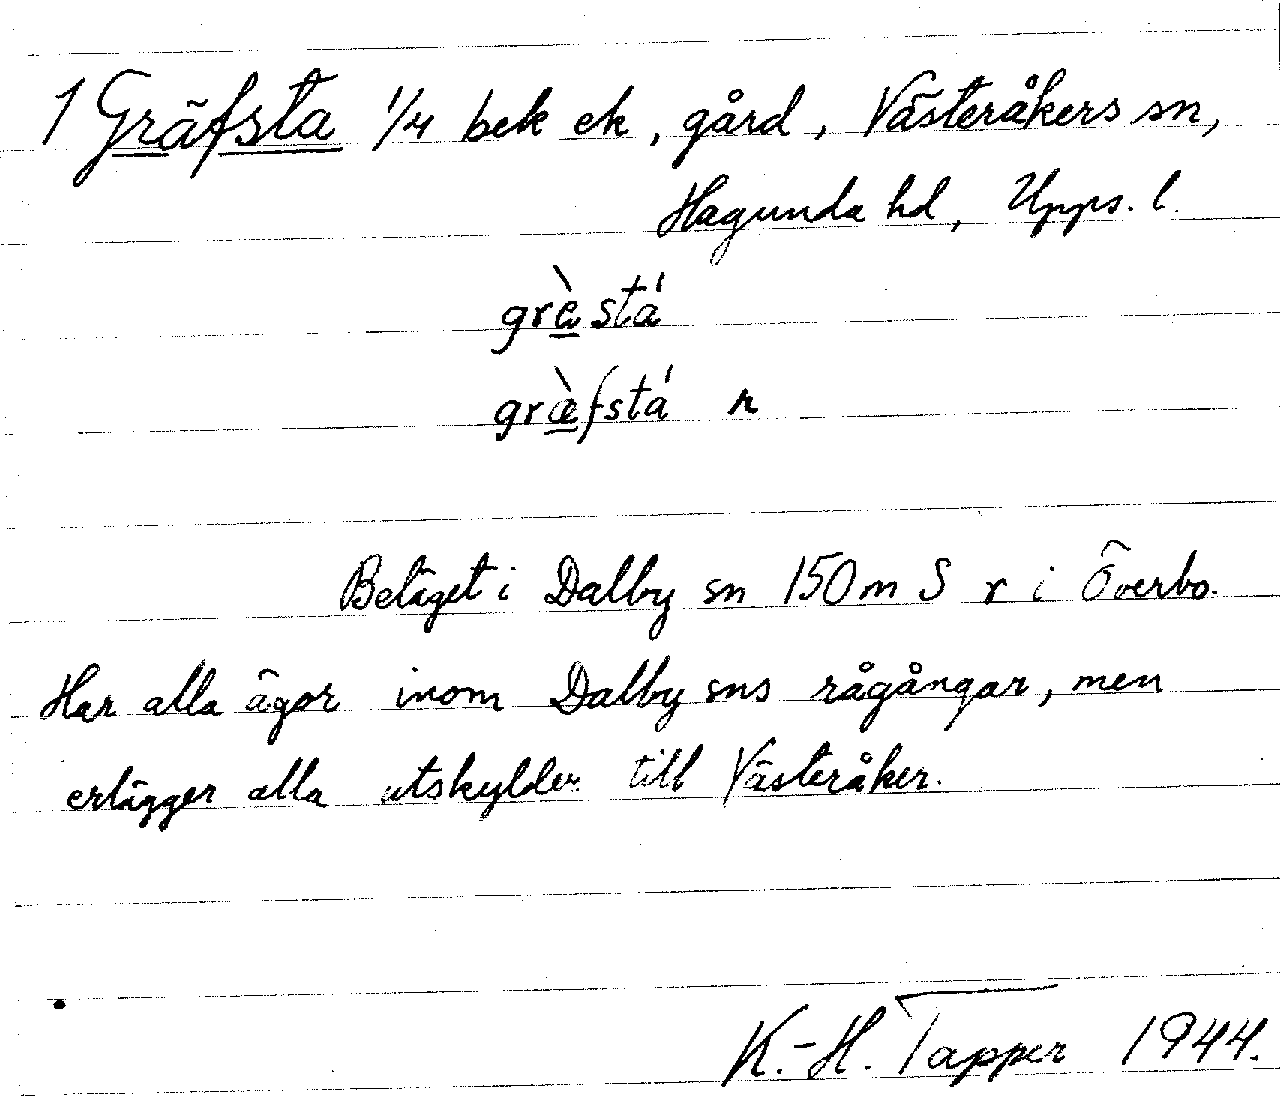 1 Gräfsta 1/4 bek ek, gård, Västeråkers sn,
Hagunda hd, Upps. l.
grèstá
græ̀fstá n
Beläget i Dalby sn 150 m S r i Överbo.
Har alla ägor inom Dalby sns rågångar, men
erlägger alla utskylder till Västeråker.
K.-H. Tapper 1944.